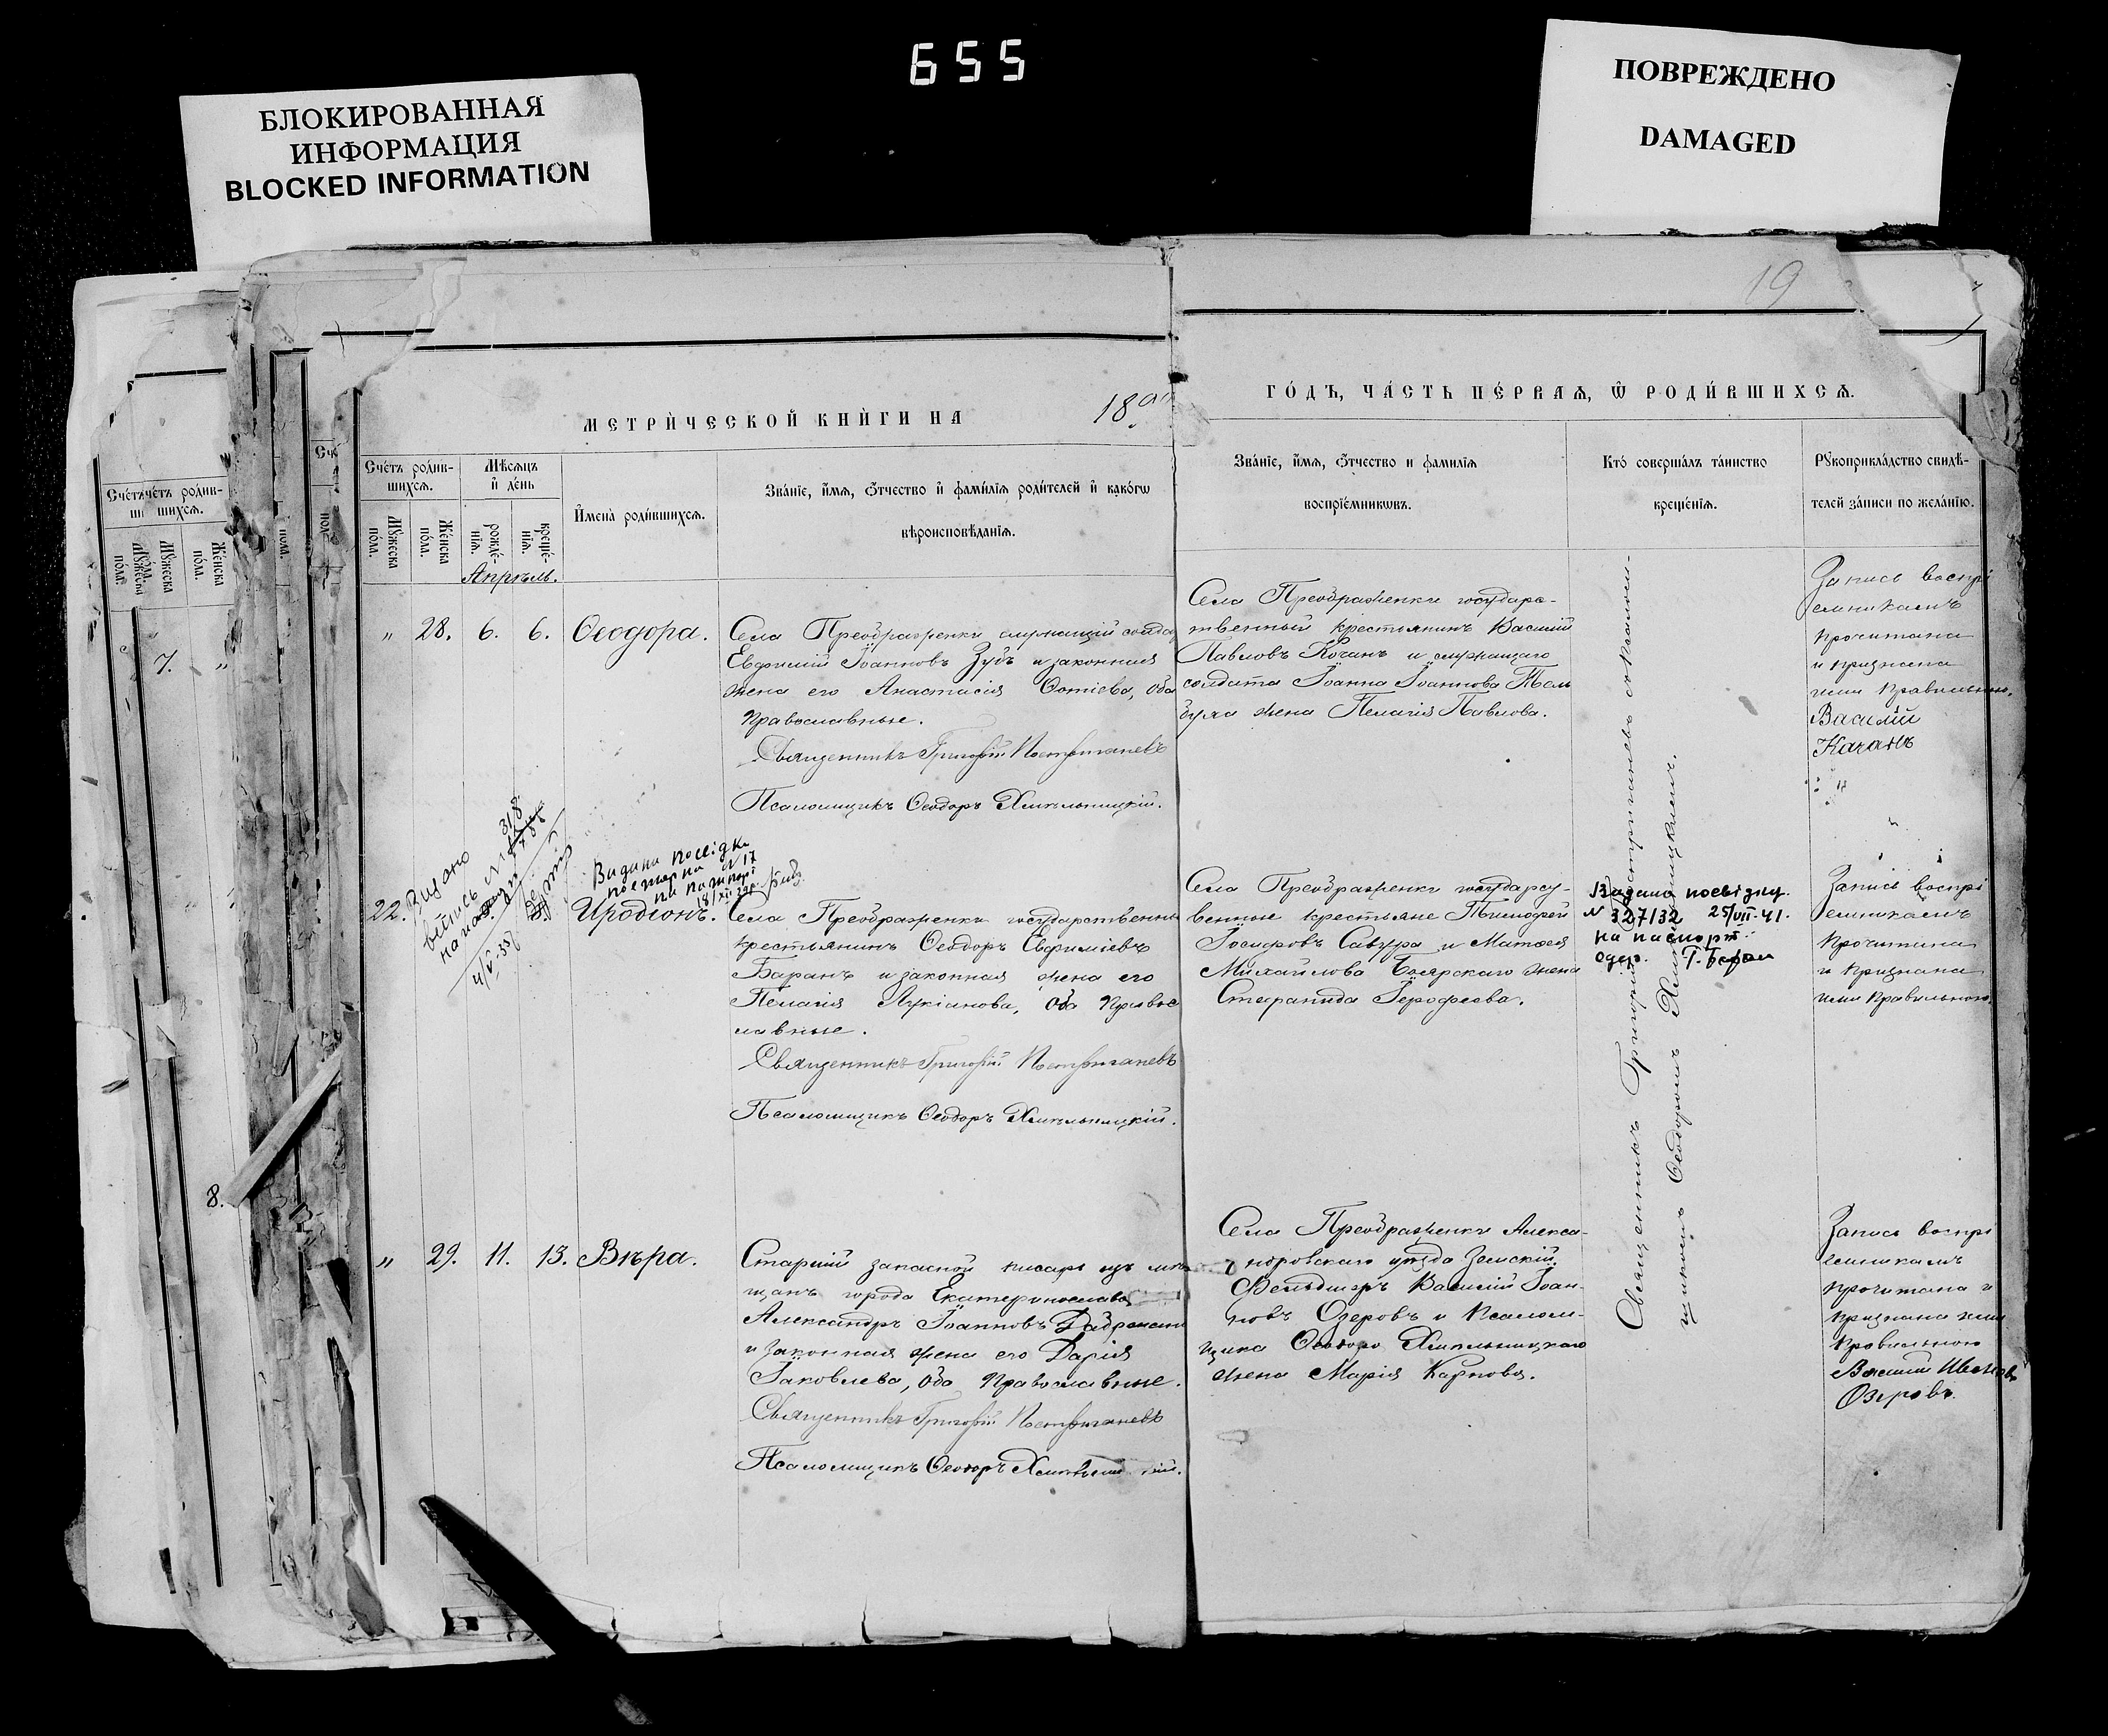 655
БЛОКИРОВАННАЯ
ИНФОРМАЦИЯ
BLOCKED INFORMATION
ПОВРЕЖДЕНО
DAMAGED
19
МЕТРИ́ЧЕСКОЙ КНИ́ГИ НА 18
ГО́ДЪ, ЧА́СТЬ ПЕ́РВАѦ, Ѿ РОДИ́ВШИХСѦ.
Сче́тъ роди́в-
шихсѧ.
Мꙋ́жеска
по́ла.
Же́нска
по́ла.
Мѣ́сѧцъ
и҆ де́нь
рожде́-
нїѧ.
креще́-
нїѧ.
И҆мена̀ роди́вшихсѧ.
Зва́нїе, и҆́мѧ, ѻ҆́тчество и҆ фами́лїѧ роди́телей и҆ како́гѡ
вѣроисповѣ́данїѧ.
Зва́нїе, и҆́мѧ, ѻ҆́тчество и фамилїѧ
воспрїе́мникѡвъ.
Кто̀ соверша́лъ та́инство
креще́нїѧ.
Рꙋкоприкла́дство свидѣ́-
телей за́писи по жела́нїю.
Апрѣль.
„ 28. 6. 6. Ѳеодора.
Села Преображенки служащій солдат
Евфимій Іоанновъ Зубъ и законная
жена его Анастасія Фотіева, оба
православные.
Священникъ Григорій
Псаломщикъ Ѳеодоръ Хмѣльницкій.
Села Преображенки государс-
твенный крестьянинъ Василій
Павловъ Качанъ и служащаго
солдата Іоанна Іоаннова
жена Пелагія Павлова.
Запись воспрі
емникамъ
прочитана
и признана
ими правильною.
Василій
Качанъ
22. Иродіонъ.
Видано
318
Видана посвідка
№ 17
на паспорт
18/XII
Села Преображенки государственный
крестьянинъ Ѳеодоръ Евфиміевъ
Баранъ и законная жена его
Пелагія Лукіанова, оба правос
лавные.
Священникъ Григорій
Псаломщикъ Ѳеодоръ Хмѣльницкій.
Села Преображенки государс-
венные крестьяне Тимоѳей
Іосифовъ Савура и Матѳея
Михайлова Боярскаго жена
Стефанида Іероѳеева.
Видано посвідку
№ 327132 25/VII-41.
на паспорт
одер. Г. Баран
Запись воспрі
емникамъ
прочитана
и признана
ими правильною.
„ 29. 11. 13. Вѣра.
Старшій запасной писарь изъ мѣ
щанъ города Екатеринослава
Александръ Іоанновъ
и законная жена его Дарія
Іаковлева, оба православные.
Священникъ Григорій
Псаломщикъ Ѳеодоръ
Села Преображенки Алекса-
ндровскаго уѣзда земскій
Фельдшеръ Василій Іоан-
новъ Озеровъ и псалом-
щика Ѳеодора Хмѣльницкаго
жена Марія Карпова.
Запись воспрі
емникамъ
прочитана и
признана ими
правильною
Василій Ивановъ
Озеровъ.
Священникъ Григорій
Ѳеодоромъ Хмѣльницкимъ.
7. „
8.